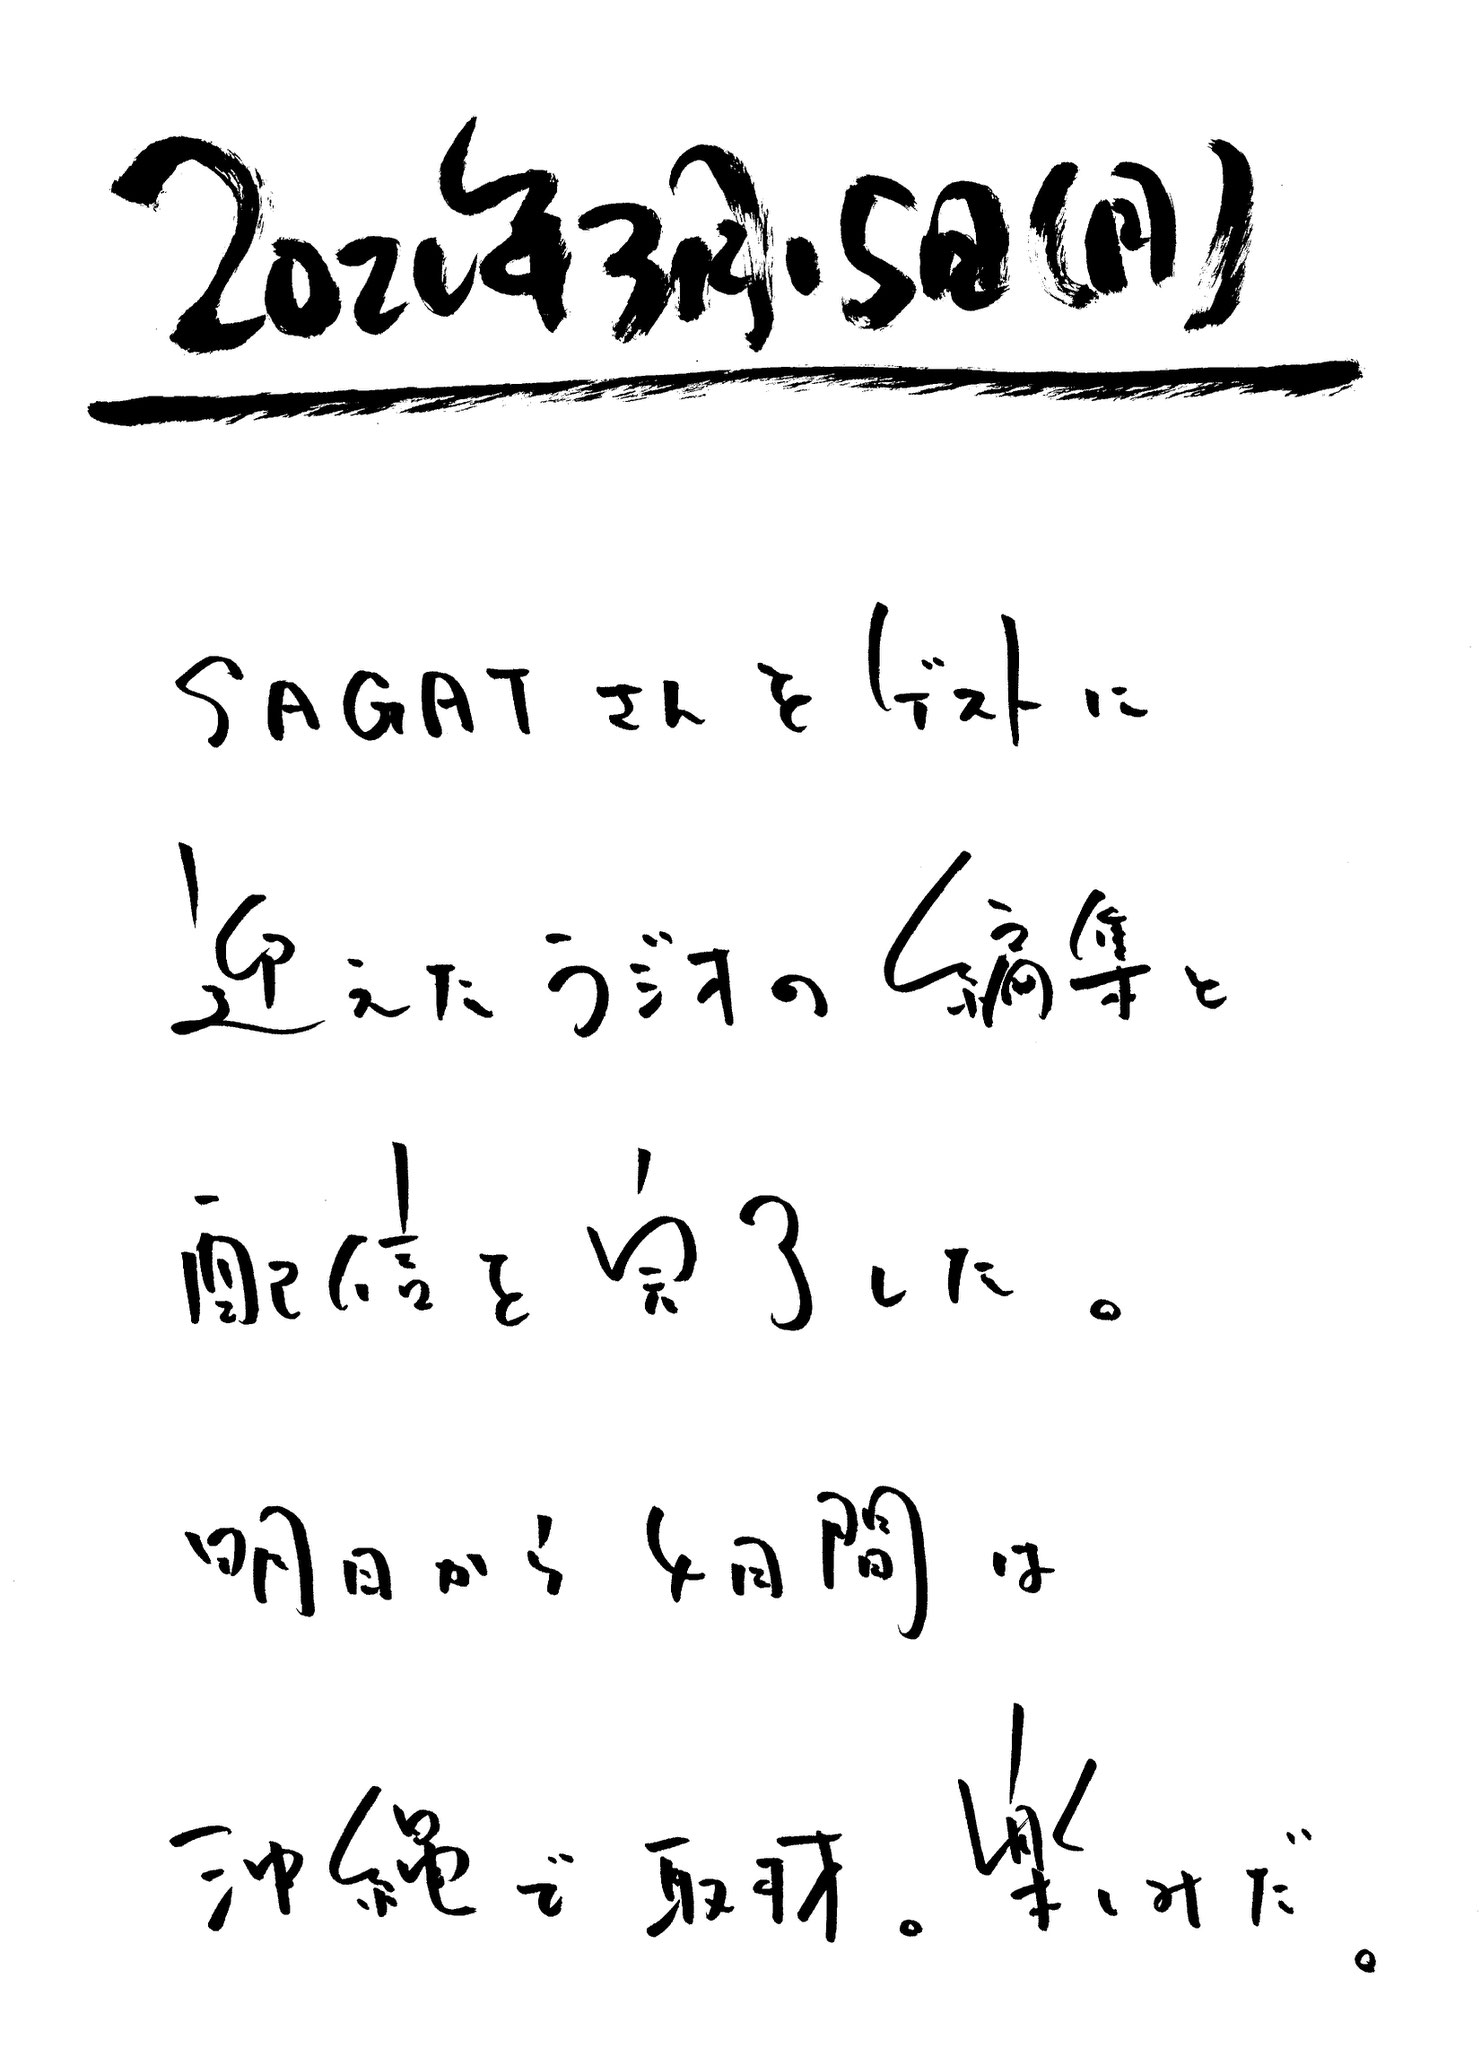 2021年3月15日(月)
SAGATさんをゲストに
迎えたラジオの編集と
配信を完了した。
明日から4日間は
沖縄で取材。楽しみだ。